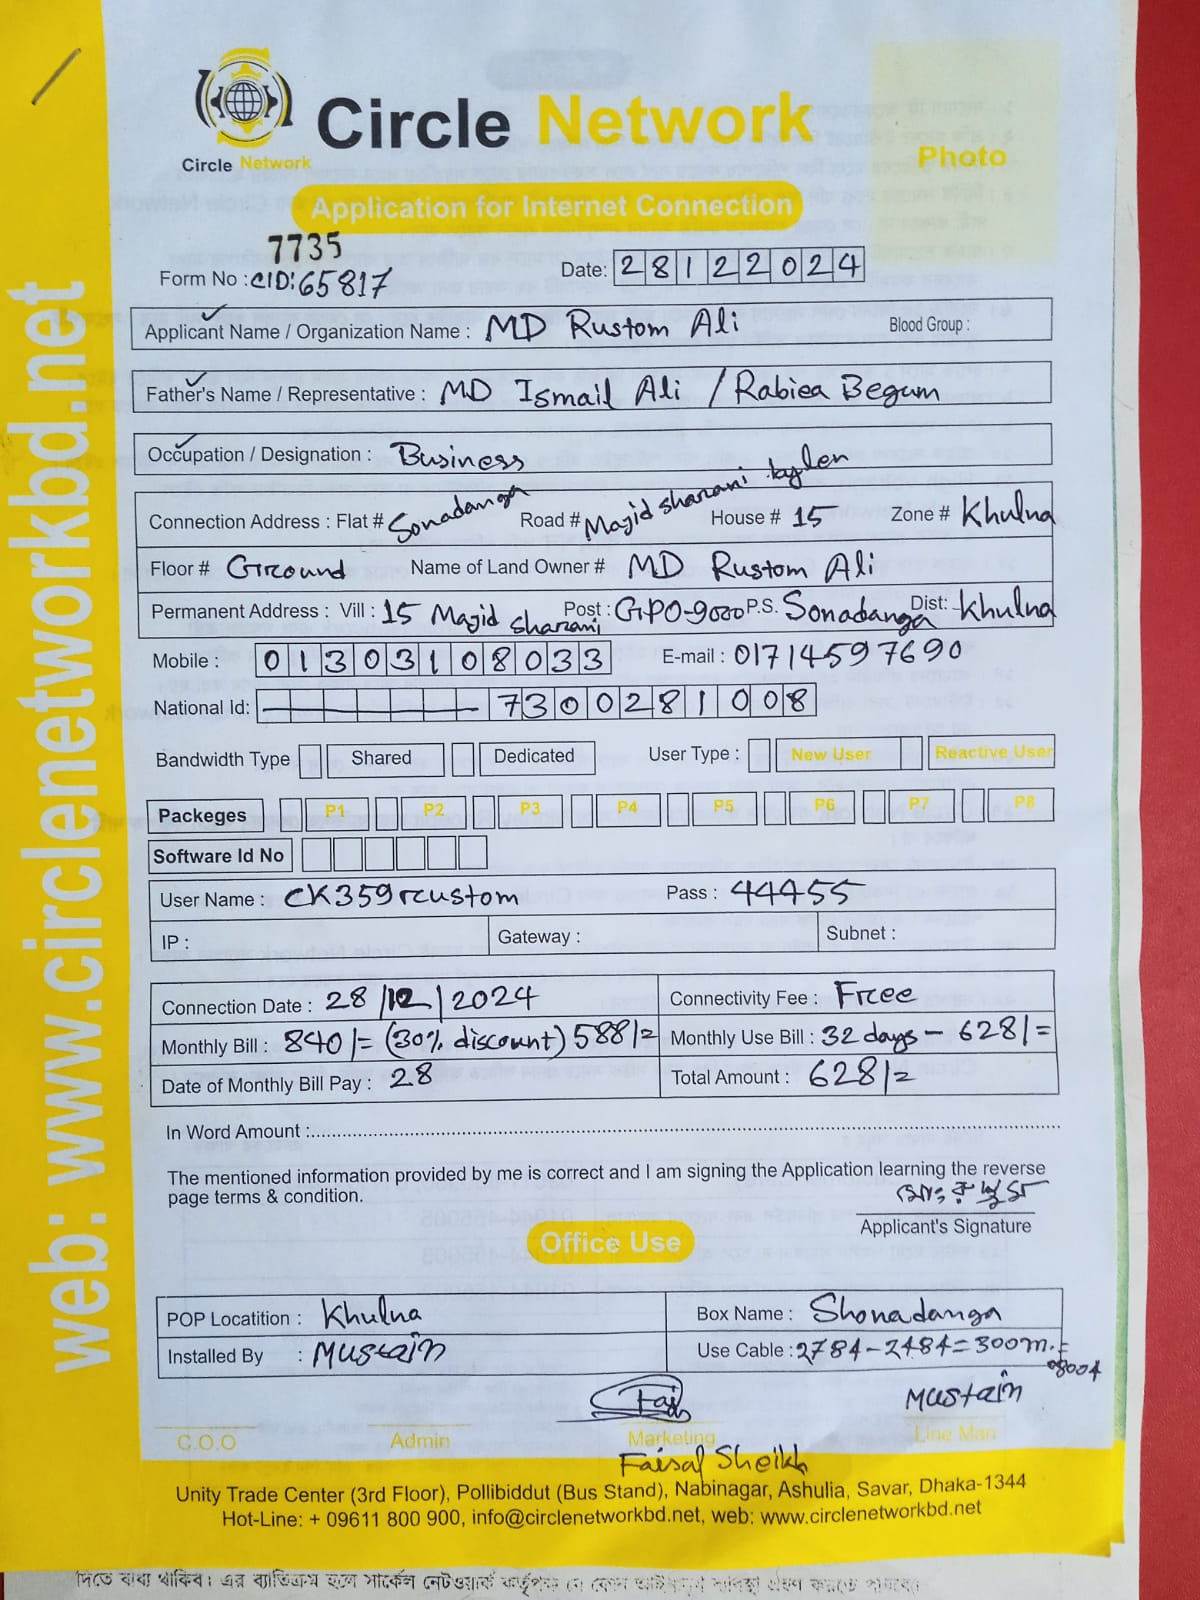 Circle Network
Circle Network
Photo
Application for Internet Connection
7735
Form No : CID:65817
Date: 28122024
Applicant Name / Organization Name : MD Rustom Ali Blood Group :
Father's Name / Representative : MD Ismail Ali / Rabiea Begum
Occupation / Designation : Business
Connection Address : Flat # Sonadanga Road # Majid sharani bylen House # 15 Zone # Khulna
Floor # Ground Name of Land Owner # MD Rustom Ali
Permanent Address : Vill : 15 Majid sharani Post : GPO-9000 P.S. Sonadanga Dist: Khulna
Mobile : 01303108033 E-mail : 01714597690
National Id: 7300281008
Bandwidth Type Shared Dedicated User Type : New User Reactive User
Packeges P1 P2 P3 P4 P5 P6 P7 P8
Software Id No
User Name : CK359rustom Pass : 44455
IP : Gateway : Subnet :
Connection Date : 28/12/2024 Connectivity Fee : Free
Monthly Bill : 840/= (30% discount) 588/= Monthly Use Bill : 32 days - 628/=
Date of Monthly Bill Pay : 28 Total Amount : 628/=
In Word Amount :
The mentioned information provided by me is correct and I am signing the Application learning the reverse
page terms & condition.
Applicant's Signature
Office Use
POP Locatition : Khulna Box Name : Shonadanga
Installed By : Mustain Use Cable : 2784-2484=300m.
Mustain
C.O.O Admin Marketing Line Man
Faisal Sheikh
Unity Trade Center (3rd Floor), Pollibiddut (Bus Stand), Nabinagar, Ashulia, Savar, Dhaka-1344
Hot-Line: + 09611 800 900, info@circlenetworkbd.net, web: www.circlenetworkbd.net
web: www.circlenetworkbd.net
দিতে বাধ্য থাকিব। এর ব্যতিক্রম হলে সার্কেল নেটওয়ার্ক কর্তৃপক্ষ যে কোন আইনানুগ ব্যবস্থা গ্রহণ করতে পারবে।